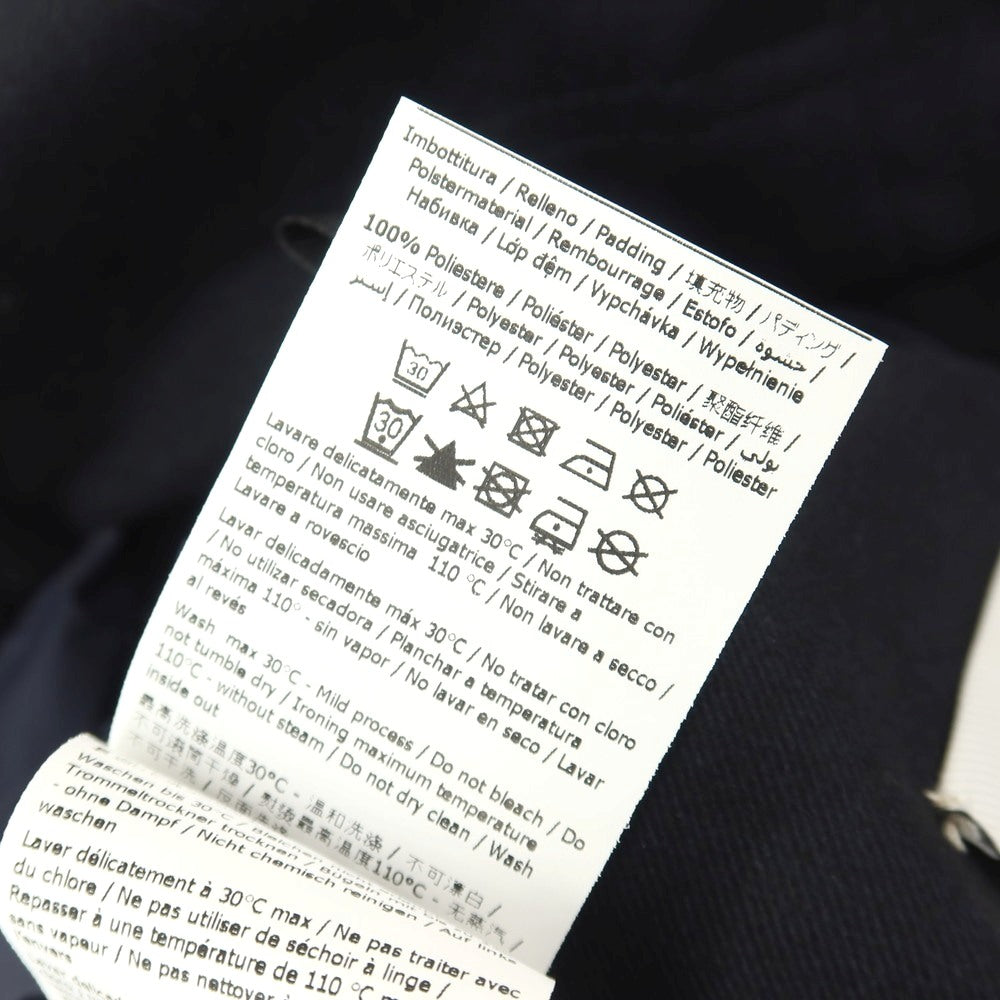 Imbottitura / Relleno / Padding / 填充物 / パディング /
Polstermaterial / Rembourrage / Estofo / حشوة /
Набивка / Lớp đệm / Vypchávka / Wypełnienie
100% Poliestere / Poliéster / Polyester / 聚酯纤维 /
ポリエステル / Polyester / Polyester / Poliéster / بولي
إستر / Полиэстер / Polyester / Polyester / Poliester
30
30
Lavare delicatamente max 30°C / Non trattare con
cloro / Non usare asciugatrice / Stirare a
temperatura massima 110 °C / Non lavare a secco /
Lavare a rovescio
Lavar delicadamente máx 30°C / No tratar con cloro
/ No utilizar secadora / Planchar a temperatura
máxima 110° - sin vapor / No lavar en seco / Lavar
al revés
Wash max 30°C - Mild process / Do not bleach / Do
not tumble dry / Ironing maximum temperature
110°C - without steam / Do not dry clean / Wash
inside out
最高洗涤温度30°C - 温和洗涤 / 不可漂白 /
不可滚筒干燥 / 熨烫最高温度110°C - 无蒸汽 /
不可干洗 /
Waschen bis 30°C - Bleichen
Trommeltrockner trocknen / Bügeln mit
- ohne Dampf / Nicht chemisch reinigen / Auf links
waschen
Laver délicatement à 30°C max / Ne pas traiter avec
du chlore / Ne pas utiliser de séchoir à linge /
Repasser à une température de 110 °C
sans vapeur / Ne pas nettoyer à
l'envers